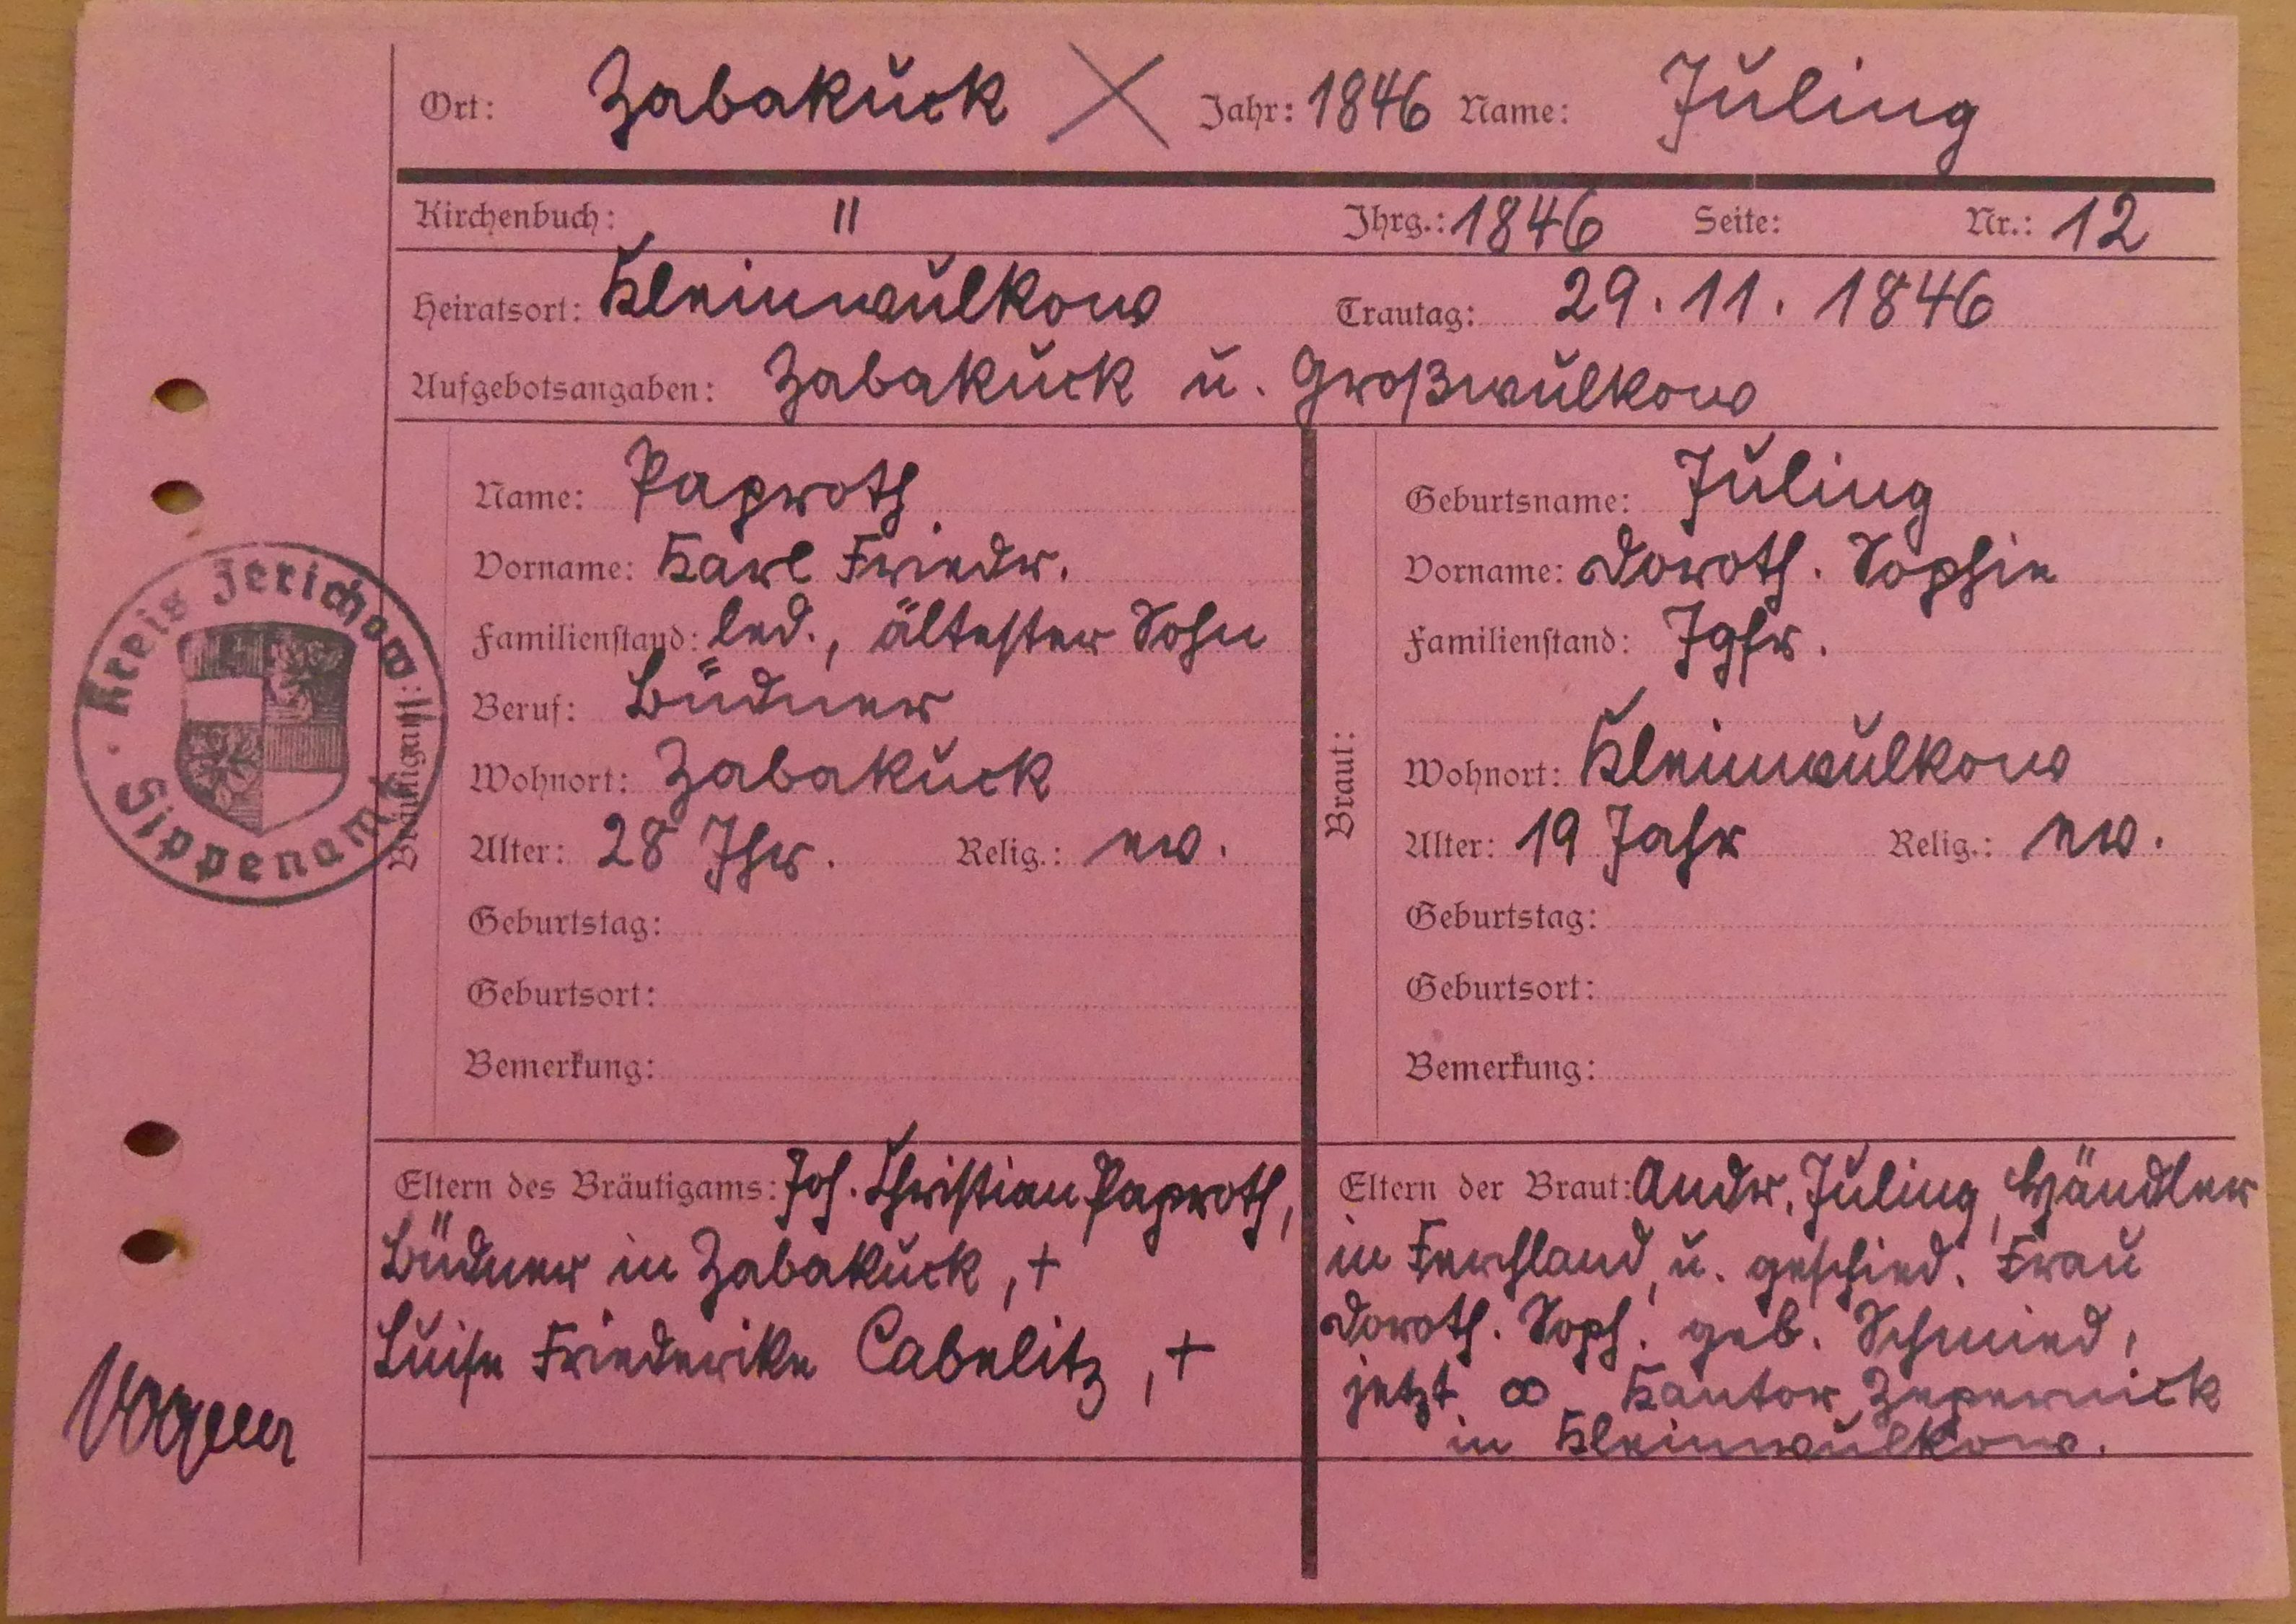 Ort: Zabakuck Jahr: 1846 Name: Juling
Kirchenbuch: " Jhrg.: 1846 Seite: Nr.: 12
Heiratsort: Kleinwulkow Trautag: 29.11.1846
Aufgebotsangaben: Zabakuck u. Großwulkow
Bräutigam:
Name: Paproth
Vorname: Karl Friedr.
Familienstand: led., ältester Sohn
Beruf: Büdner
Wohnort: Zabakuck
Alter: 28 Jhr. Relig.: ev.
Geburtstag:
Geburtsort:
Bemerkung:
Eltern des Bräutigams: Joh. Christian Paproth,
Büdner in Zabakuck, +
Luise Friederike Cabelitz, +
Braut:
Geburtsname: Juling
Vorname: Doroth. Sophie
Familienstand: Jgfr.
Wohnort: Kleinwulkow
Alter: 19 Jahr Relig.: ev.
Geburtstag:
Geburtsort:
Bemerkung:
Eltern der Braut: Andr. Juling, Händler
in Ferchland, u. geschied. Frau
Doroth. Soph. geb. Schmied,
jetzt ∞ Kantor Zepernick
in Kleinwulkow.
Kreis Jerichow
Sippenamt